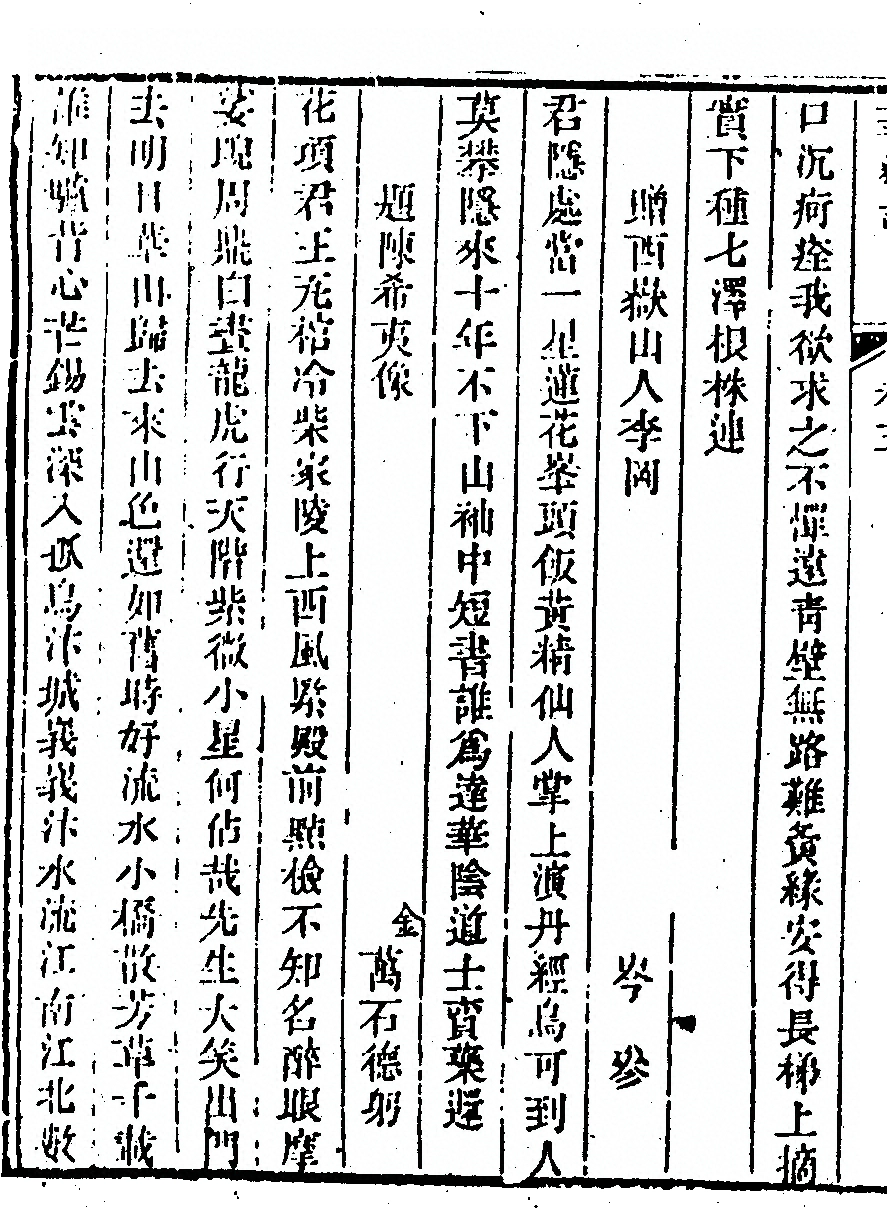 口沉疴痊我欲求之不憚遠青壁無路難夤緣安得長梯上摘
實下種七澤根株連
贈西嶽山人李岡 岑參
君隱處當一星蓮花峯頭飯黃精仙人掌上演丹經鳥可到人
莫攀隱來十年不下山袖中短書誰爲達華陰道士賣藥還
題陳希夷像 金 萬石德躬
花項君王死棺冷柴家陵上西風緊殿前點檢不知名醉眼摩
娑窺周鼎白晝龍虎行天階紫微小星何佔哉先生大笑出門
去明日華山歸去來山色還如舊時好流水小橋散芳草千載
誰知驢背心芒錫雲深入孤鳥汴城峩峩汴水流江南江北數